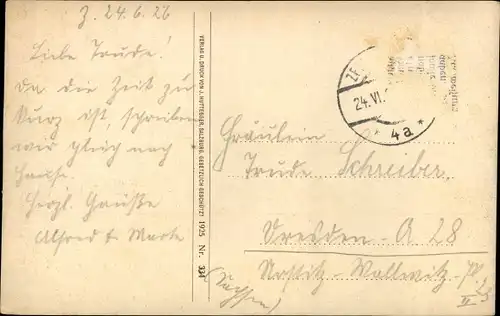 Z. 24.6.26
Liebe Trude!
Da die Zeit zu
kurz ist, schreiben
wir gleich nach
Hause.
Herzl. Grüße
Alfred & Marte
VERLAG U. DRUCK VON J. HUTTEGGER, SALZBURG. GESETZLICH GESCHÜTZT! 1925 Nr.
24. VI.
* 4a *
Fräulein
Trude Schreiber
Dresden - A 28
Wallwitz
(Sachsen)